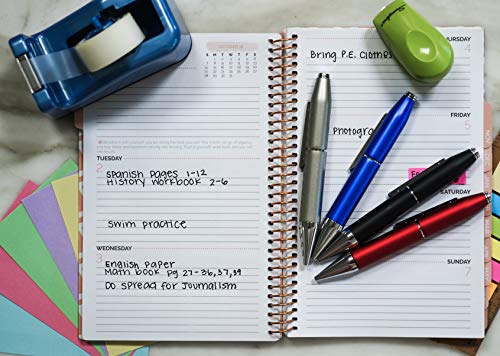 OCTOBER
S M T W T F S
TUESDAY
2
Spanish pages 1-12
History workbook 2-6
Swim practice
WEDNESDAY
3
English paper
Math book pg 27-36,37,39
Do spread for Journalism
THURSDAY
4
Bring P.E. Clothes
FRIDAY
5
Photogra
SATURDAY
SUNDAY
7